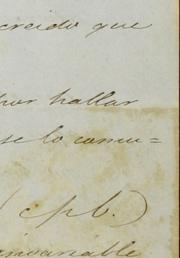 creido que
por hallar
se lo comu=
cpb.)
invariable